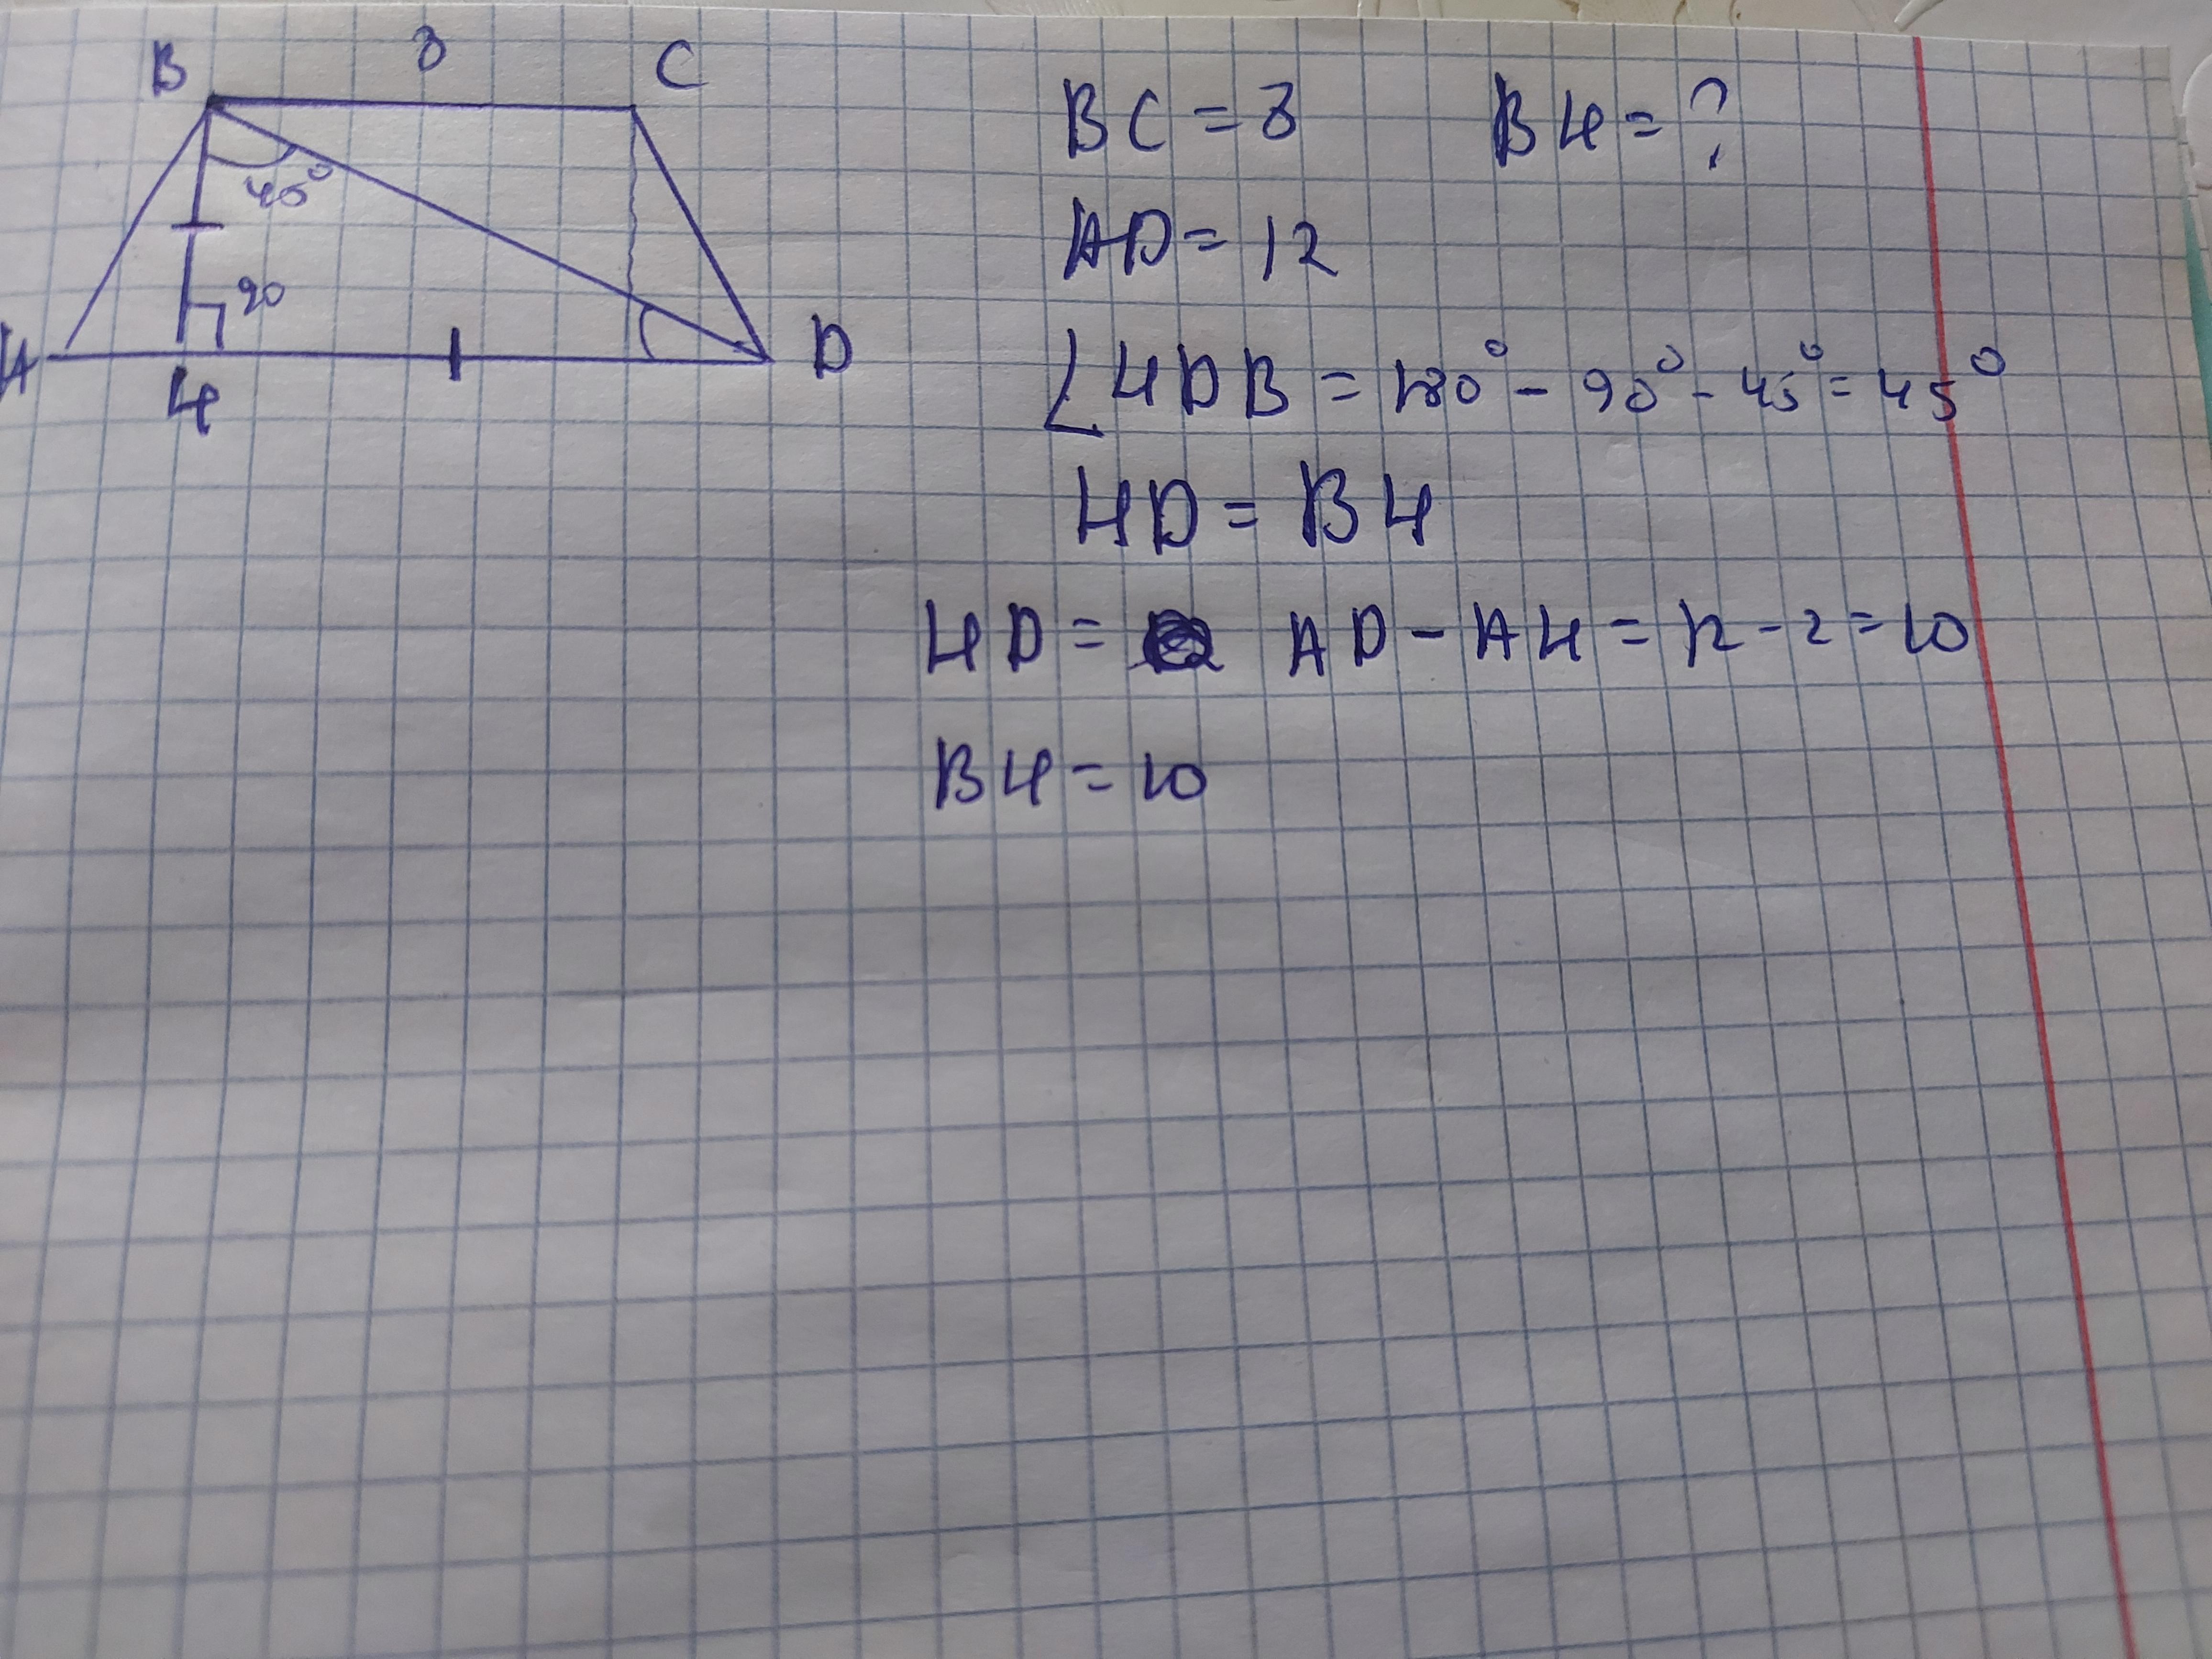 B 8 C
45°
90
A D
H
BC = 8 BH = ?
AD = 12
∠HDB = 180° - 90° - 45° = 45°
HD = BH
HD = AD - AH = 12 - 2 = 10
BH = 10